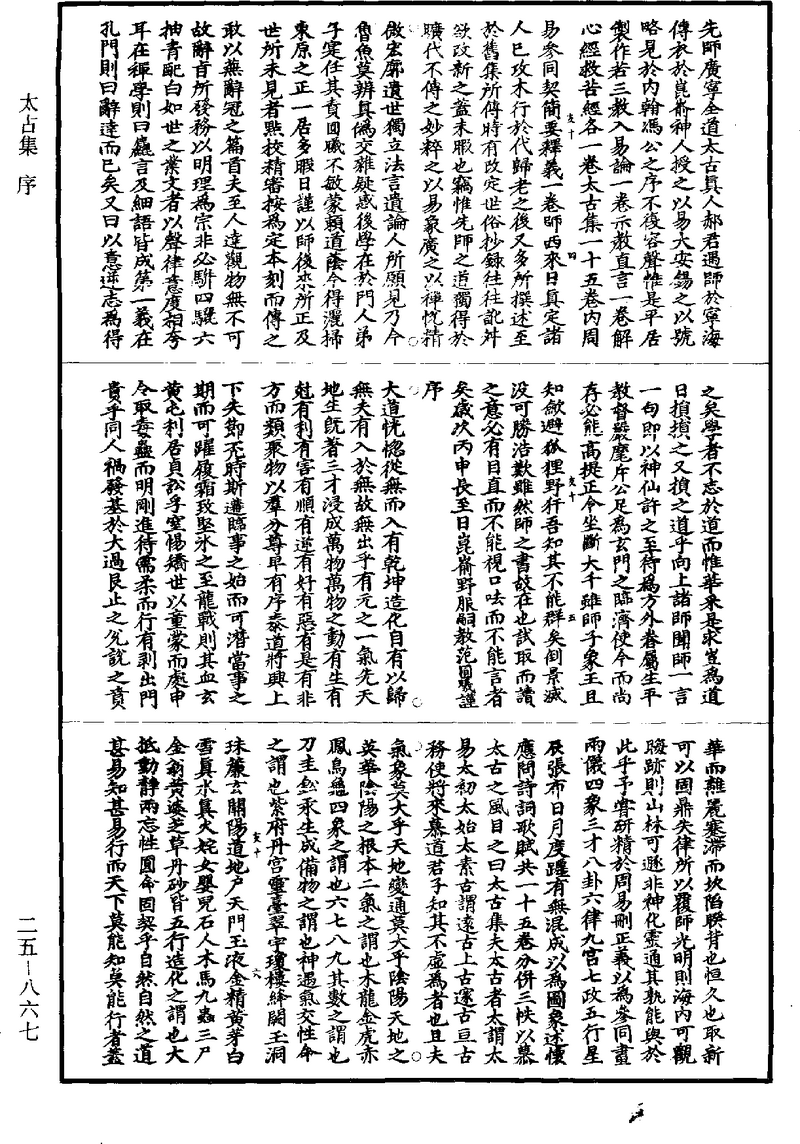 太古集 序
二五—八六七
先師廣寧全道太古眞人郝君遇師於寧海
傳衣於崑崳神人授之以易大安錫之以號
略見於内翰馮公之序不復容聲惟是平居
製作若三教入易論一卷示教直言一卷解
心經救苦經各一卷太古集一十五卷内周
易參同契簡要釋義一卷師西來日眞定諸
人已攻木行於代歸老之後又多所撰述至
於舊集所傳時有改定世俗抄錄往往訛舛
欲改新之蓋未暇也竊惟先師之道獨得於
曠代不傳之妙粹之以易象廣之以禪悅精
微宏廓遺世獨立法言遺論人所願見乃今
魯魚莫辨眞僞交雜疑惑後學在於門人弟
子寔任其責圓曦不敏蒙賴道蔭今得灑掃
東原之正一居多暇日謹以師後來所正及
世所未見者㸃挍精審按爲定本刻而傳之
敢以蕪辭冠之篇首夫至人達觀物無不可
故辭旨所發務以明理爲宗非必駢四驪六
抽青配白如世之業文者以聲律意度相夸
耳在禪學則曰麤言及細語皆成第一義在
孔門則曰辭達而已矣又曰以意逆志爲得
之矣學者不志於道而惟華采是求豈爲道
日損損之又損之道乎向上諸師聞師一言
一句即以神仙許之至待爲方外眷屬生平
教督嚴麾斥公足爲玄門之臨濟使今而尚
存必能高提正令坐斷大千雖師子象王且
知歛避狐狸野犴吾知其不能群矣倒景滅
没可勝浩歎雖然師之書故在也試取而讀
之意必有目直而不能視口呿而不能言者
矣歲次丙申長至日崑崳野服嗣教范圓曦謹
序
大道恍惚從無而入有乾坤造化自有以歸
無夫有入於無故無出乎有元之一氣先天
地生旣著三才浸成萬物萬物之動有生有
尅有利有害有順有逆有好有惡有是有非
方而類聚物以羣分尊卑有序泰道將興上
下失節否時斯遘臨事之始而可濳當事之
期而可躍履霜致堅氷之至龍戰則其血玄
黄屯利居貞訟孚窒惕矯世以童蒙而處中
令取毒蠱而明剛進待儒柔而行有剥出門
貴乎同人禍發基於大過艮止之兌說之賁
華而離麗蹇滯而坎陷睽背也恒久也取新
可以固鼎失律所以覆師光明則海内可觀
晦跡則山林可遯非神化靈通其孰能與於
此乎予嘗研精於周易刪正義以爲參同畫
兩儀四象三才八卦六律九宫七政五行星
辰張布日月度躔有無混成以爲圖象述懐
應問詩詞歌賦共一十五卷分併三帙以慕
太古之風目之曰太古集夫太古者太謂太
易太初太始太素古謂遠古上古邃古亘古
務使將來慕道君子知其不虛爲者也且夫
氣象莫大乎天地變通莫大乎陰陽天地之
英華陰陽之根本二氣之謂也木龍金虎赤
鳳烏龜四象之謂也六七八九其數之謂也
刀圭鈆汞生成備物之謂也神遇氣交性命
之謂也紫府丹宫靈臺翠宇瓊樓絳闕玉洞
珠簾玄關陽道地户天門玉液金精黄芽白
雪眞水眞火姹女嬰兒石人木馬九蟲三尸
金翁黄婆芝草丹砂皆五行造化之謂也大
抵動靜兩忘性圓命固契乎自然自然之道
甚易知甚易行而天下莫能知矣能行者蓋